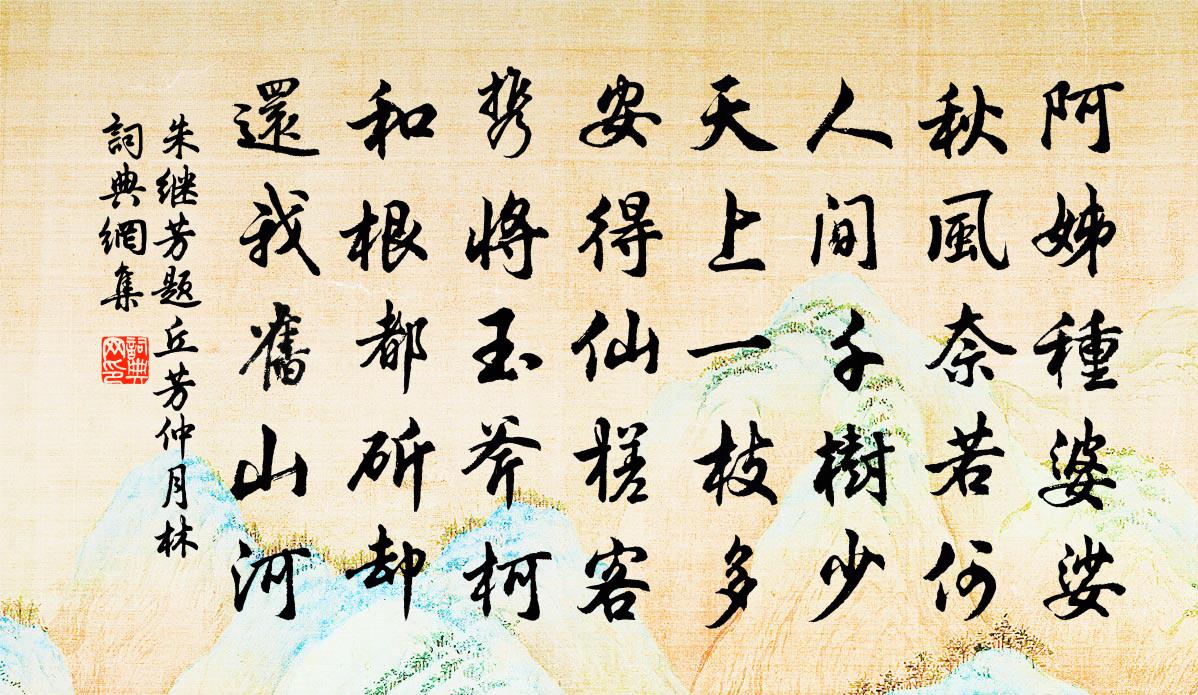 阿姊種婆娑
秋風奈若何
人間千樹少
天上一枝多
安得仙槎客
携將玉斧柯
和根都斫却
還我舊山河
朱继芳題丘芳仲月林
詞典網集
詞典網印